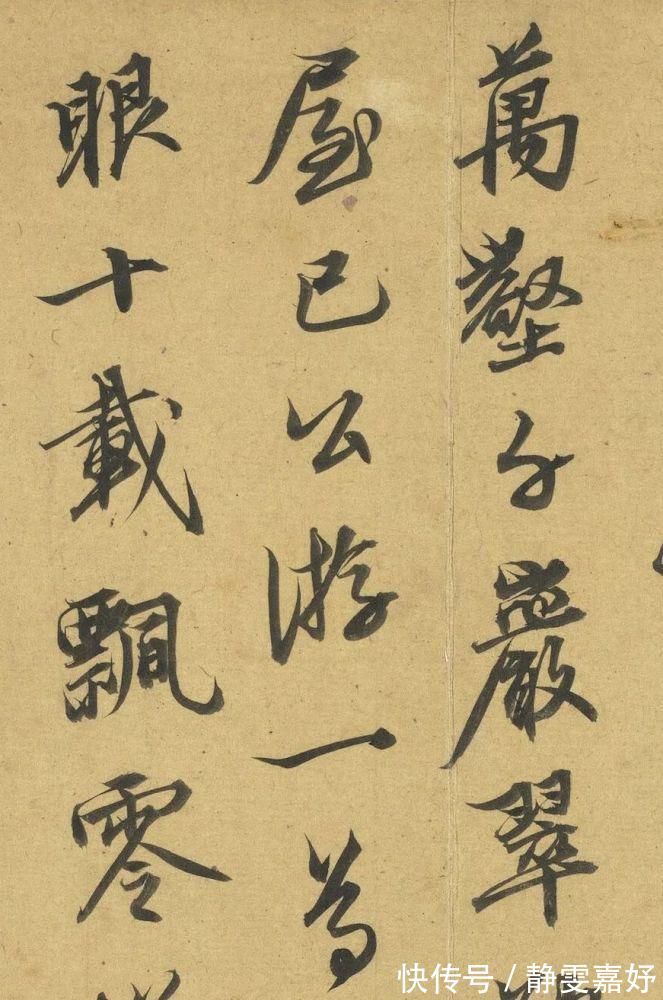 萬壑千巖翠
屋已公游一
眼十載飄零
快传号/静雯嘉好